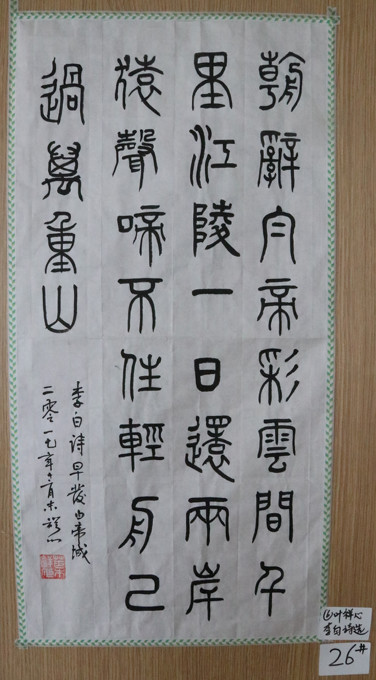 朝辭白帝彩雲間千
里江陵一日還兩岸
猿聲啼不住輕舟已
過萬重山
李白诗早發白帝城
二零一七年 祥心
(6)叶祥心
李白诗选
26#